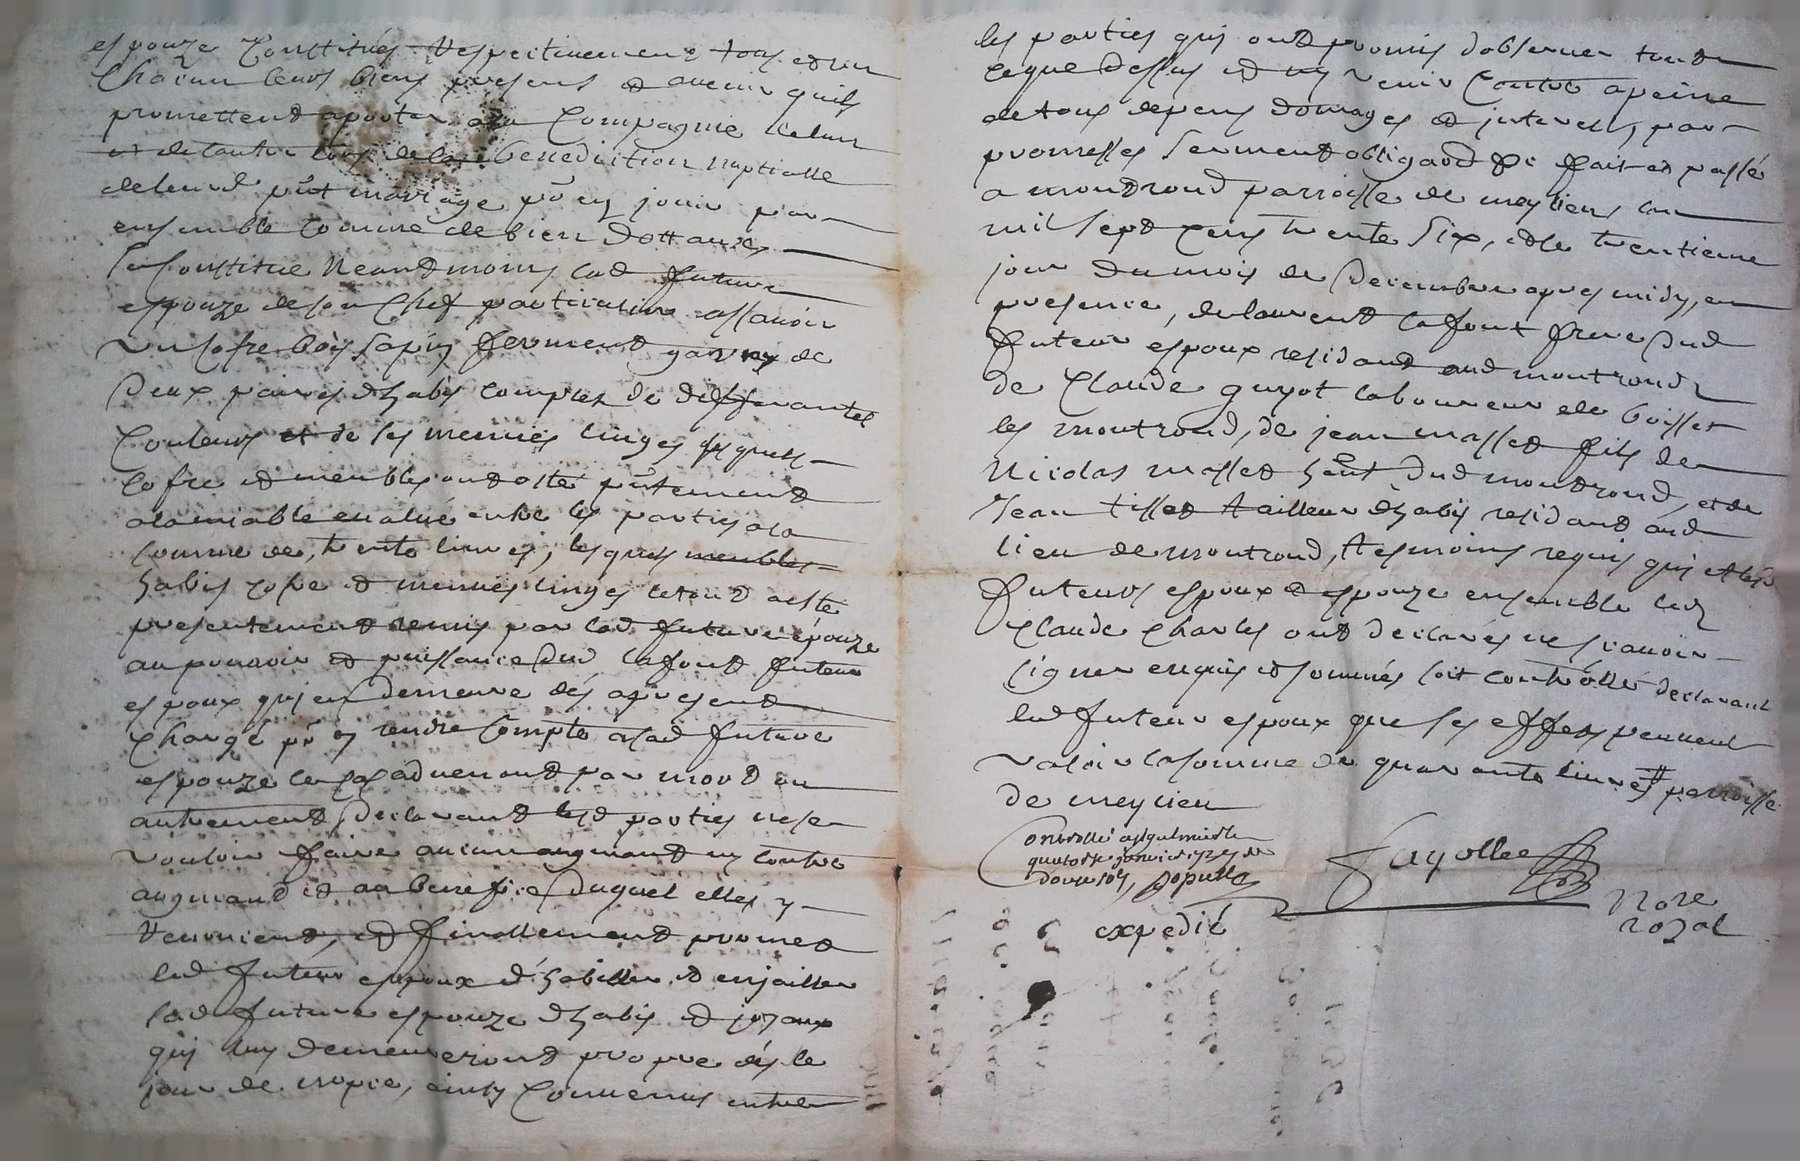 espouze Constitués Respectivement tous et un
Chacun leurs biens presens et avenir quils
promettent aporter a la Compagnie delun
et delautre lors de la benediction nuptialle
deleurd pnt mariage po en jouir par
ensemble comme de bien dottaux,
se Constitue Neantmoins lad future
espouze de son Chef particulier assavoir
un cofre bois sapin ferment garny de
Deux paires dhabis complet de differantes
Couleurs et de ses menues linges lesquels
cofre et meubles ont esté pntement
alamiable evalué entre les parties ala
somme de, trente livres, lesquels meubles
habis cofre et menues linges letout a esté
presentement remis par lad future épouze
au pouvoir et puissance dud lafont futeur
espoux qui en demeure dés apresent
Chargé po en rendre Compte a lad future
espouze le cas advenant par mort ou
autrement, declarant lesd parties ne se
vouloir faire aucun augmant ny contre
augmant et au benefice duquel elles y
Renoncent, et finallement promet
led futeur espoux d'habiller et enjailler
lad future espouze dhabis et joyaux
qui luy demeureront propre dés le
jour de nopce, ainsy Convenus entre
les parties qui ont promis dobserver tout
ceque dessus et ny venir Contre apeine
de tous depens domages et interets, par
promesses serment obligaōn &c fait et passé
a montrond parroisse de meylieu lan
mil sept Cens trente six, et le trentieme
jour du mois de Decembre apres midy, en
presence, de laurent lafont frere dud
futeur espoux residant aud montrond
de Claude guyot laboureur de boisset
les montrond, de jean masset fils de
Nicolas masset hant dud montrond, et de
Jean tisset tailleur dhabis residant aud
lieu de montrond, tesmoins requis qui et lesd
futeurs espoux et espouze ensemble led
Claude Charles ont declarés ne scavoir
signer enquis et sommés soit controllé declarant
led futeur espoux que ses effets peuvent
valoir la somme de quarante livres # parroisse
de meylieu
Controllé a
quatorze janvier 1737
douze sols,
Fayolle
Nore
royal
expedié